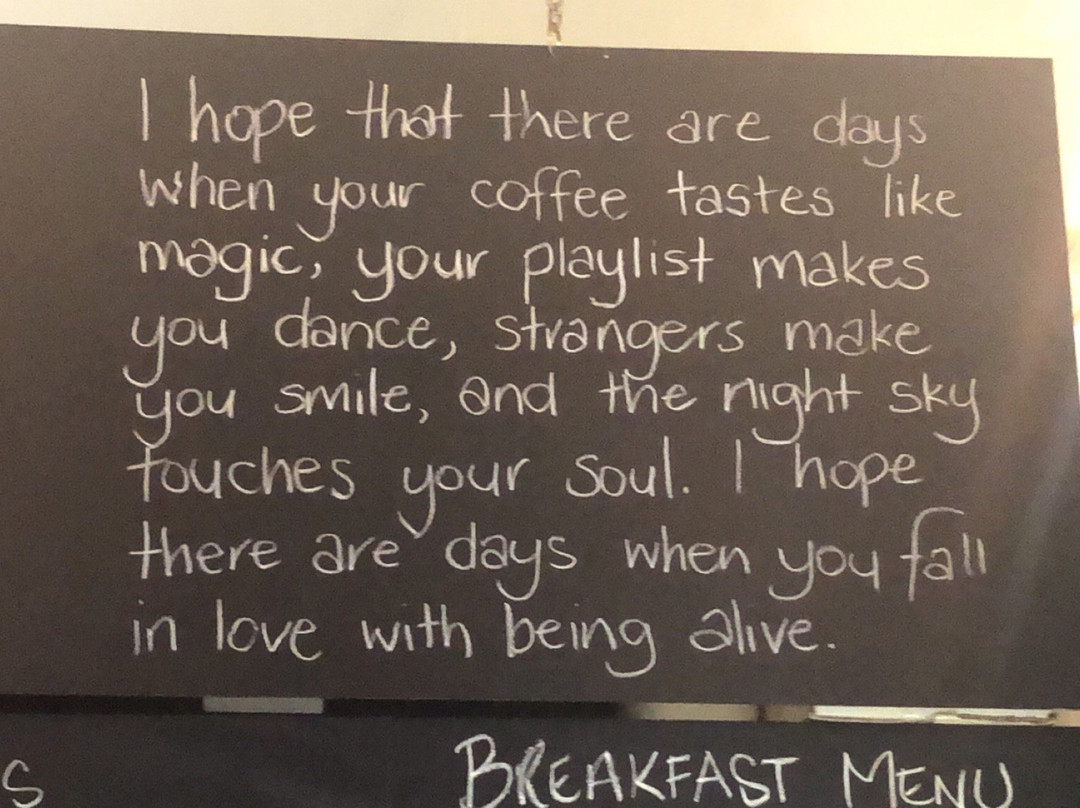 I hope that there are days
when your coffee tastes like
magic, your playlist makes
you dance, strangers make
you smile, and the night sky
touches your soul. I hope
there are days when you fall
in love with being alive.
BREAKFAST MENU